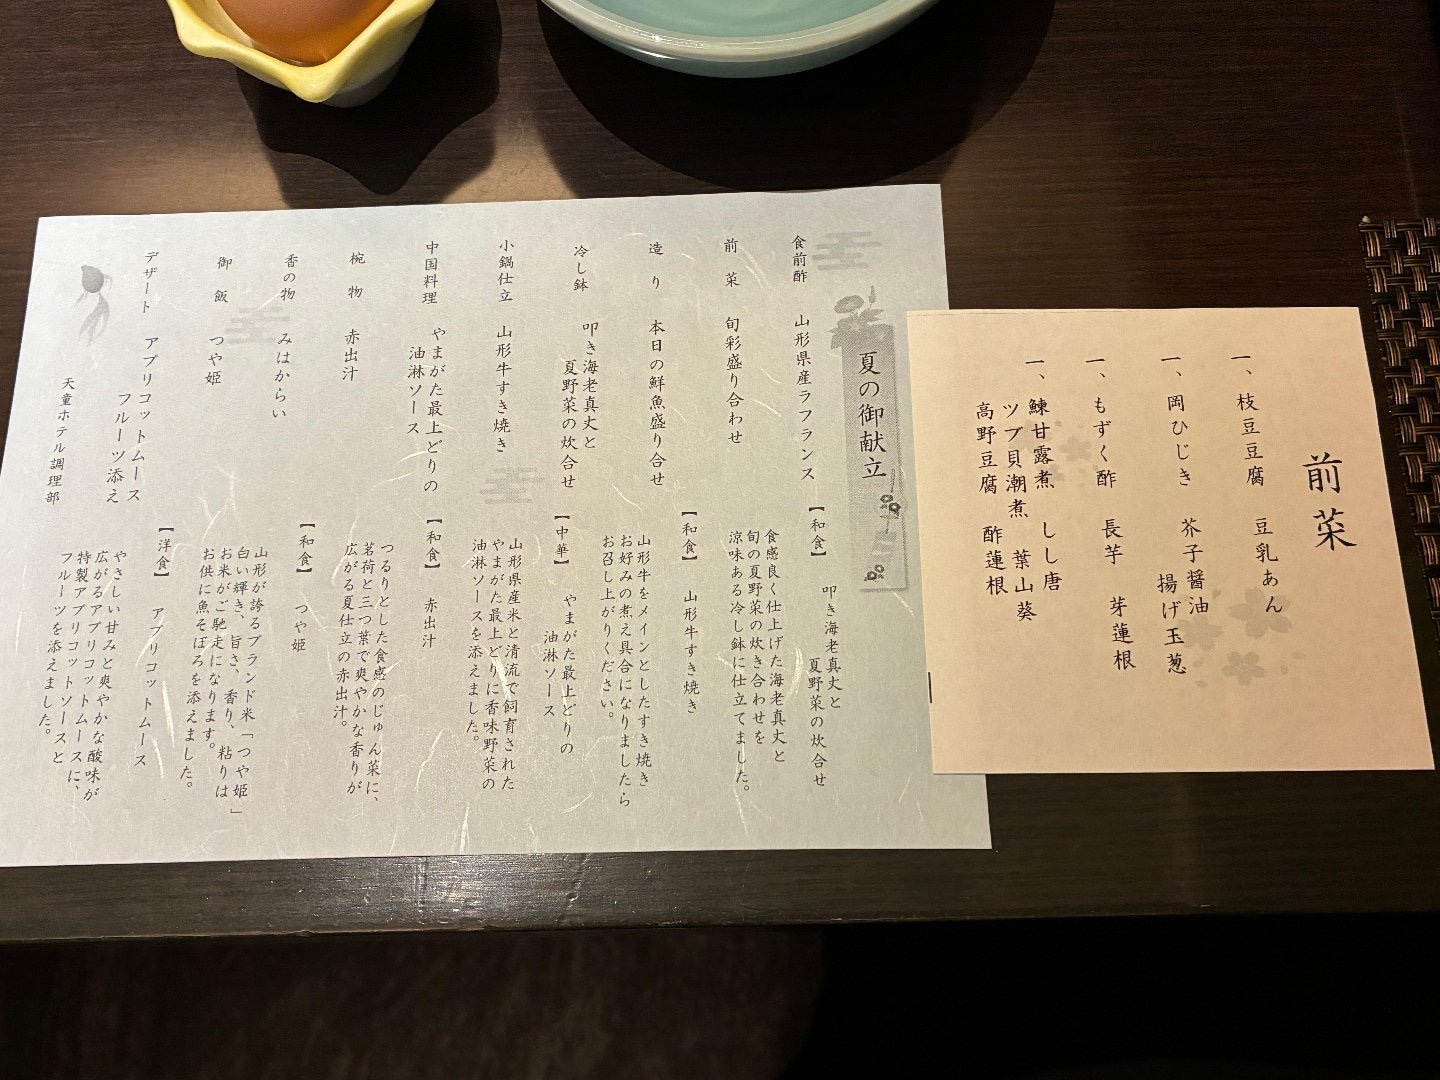 前菜
一、枝豆豆腐 豆乳あん
一、岡ひじき 芥子醤油
揚げ玉葱
一、もずく酢 長芋 芽蓮根
一、鰊甘露煮 しし唐
ツブ貝潮煮 葉山葵
高野豆腐 酢蓮根
夏の御献立
食前酢 山形県産ラフランス
前菜 旬彩盛り合わせ
造り 本日の鮮魚盛り合せ
冷し鉢 叩き海老真丈と
夏野菜の炊合せ
小鍋仕立 山形牛すき焼き
中国料理 やまがた最上どりの
油淋ソース
椀物 赤出汁
香の物 みはからい
御飯 つや姫
デザート アプリコットムース
フルーツ添え
天童ホテル調理部
【和食】 叩き海老真丈と
夏野菜の炊合せ
食感良く仕上げた海老真丈と
旬の夏野菜の炊き合わせを
涼味ある冷し鉢に仕立てました。
【和食】 山形牛すき焼き
山形牛をメインとしたすき焼き
お好みの煮え具合になりましたら
お召し上がりください。
【中華】 やまがた最上どりの
油淋ソース
山形県産米と清流で飼育された
やまがた最上どりに香味野菜の
油淋ソースを添えました。
【和食】 赤出汁
つるりとした食感のじゅん菜に、
茗荷と三つ葉で爽やかな香りが
広がる夏仕立の赤出汁。
【和食】 つや姫
山形が誇るブランド米「つや姫」
白い輝き、旨さ、香り、粘りは
お米がご馳走になります。
お供に魚そぼろを添えました。
【洋食】 アプリコットムース
やさしい甘みと爽やかな酸味が
広がるアプリコットムースに、
特製アプリコットソースと
フルーツを添えました。